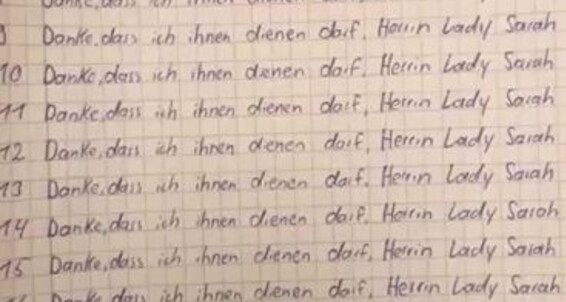 Danke, dass ich ihnen dienen
9 Danke, dass ich ihnen dienen darf, Herrin Lady Sarah
10 Danke, dass ich ihnen dienen darf, Herrin Lady Sarah
11 Danke, dass ich ihnen dienen darf, Herrin Lady Sarah
12 Danke, dass ich ihnen dienen darf, Herrin Lady Sarah
13 Danke, dass ich ihnen dienen darf, Herrin Lady Sarah
14 Danke, dass ich ihnen dienen darf, Herrin Lady Sarah
15 Danke, dass ich ihnen dienen darf, Herrin Lady Sarah
Danke, dass ich ihnen dienen darf, Herrin Lady Sarah